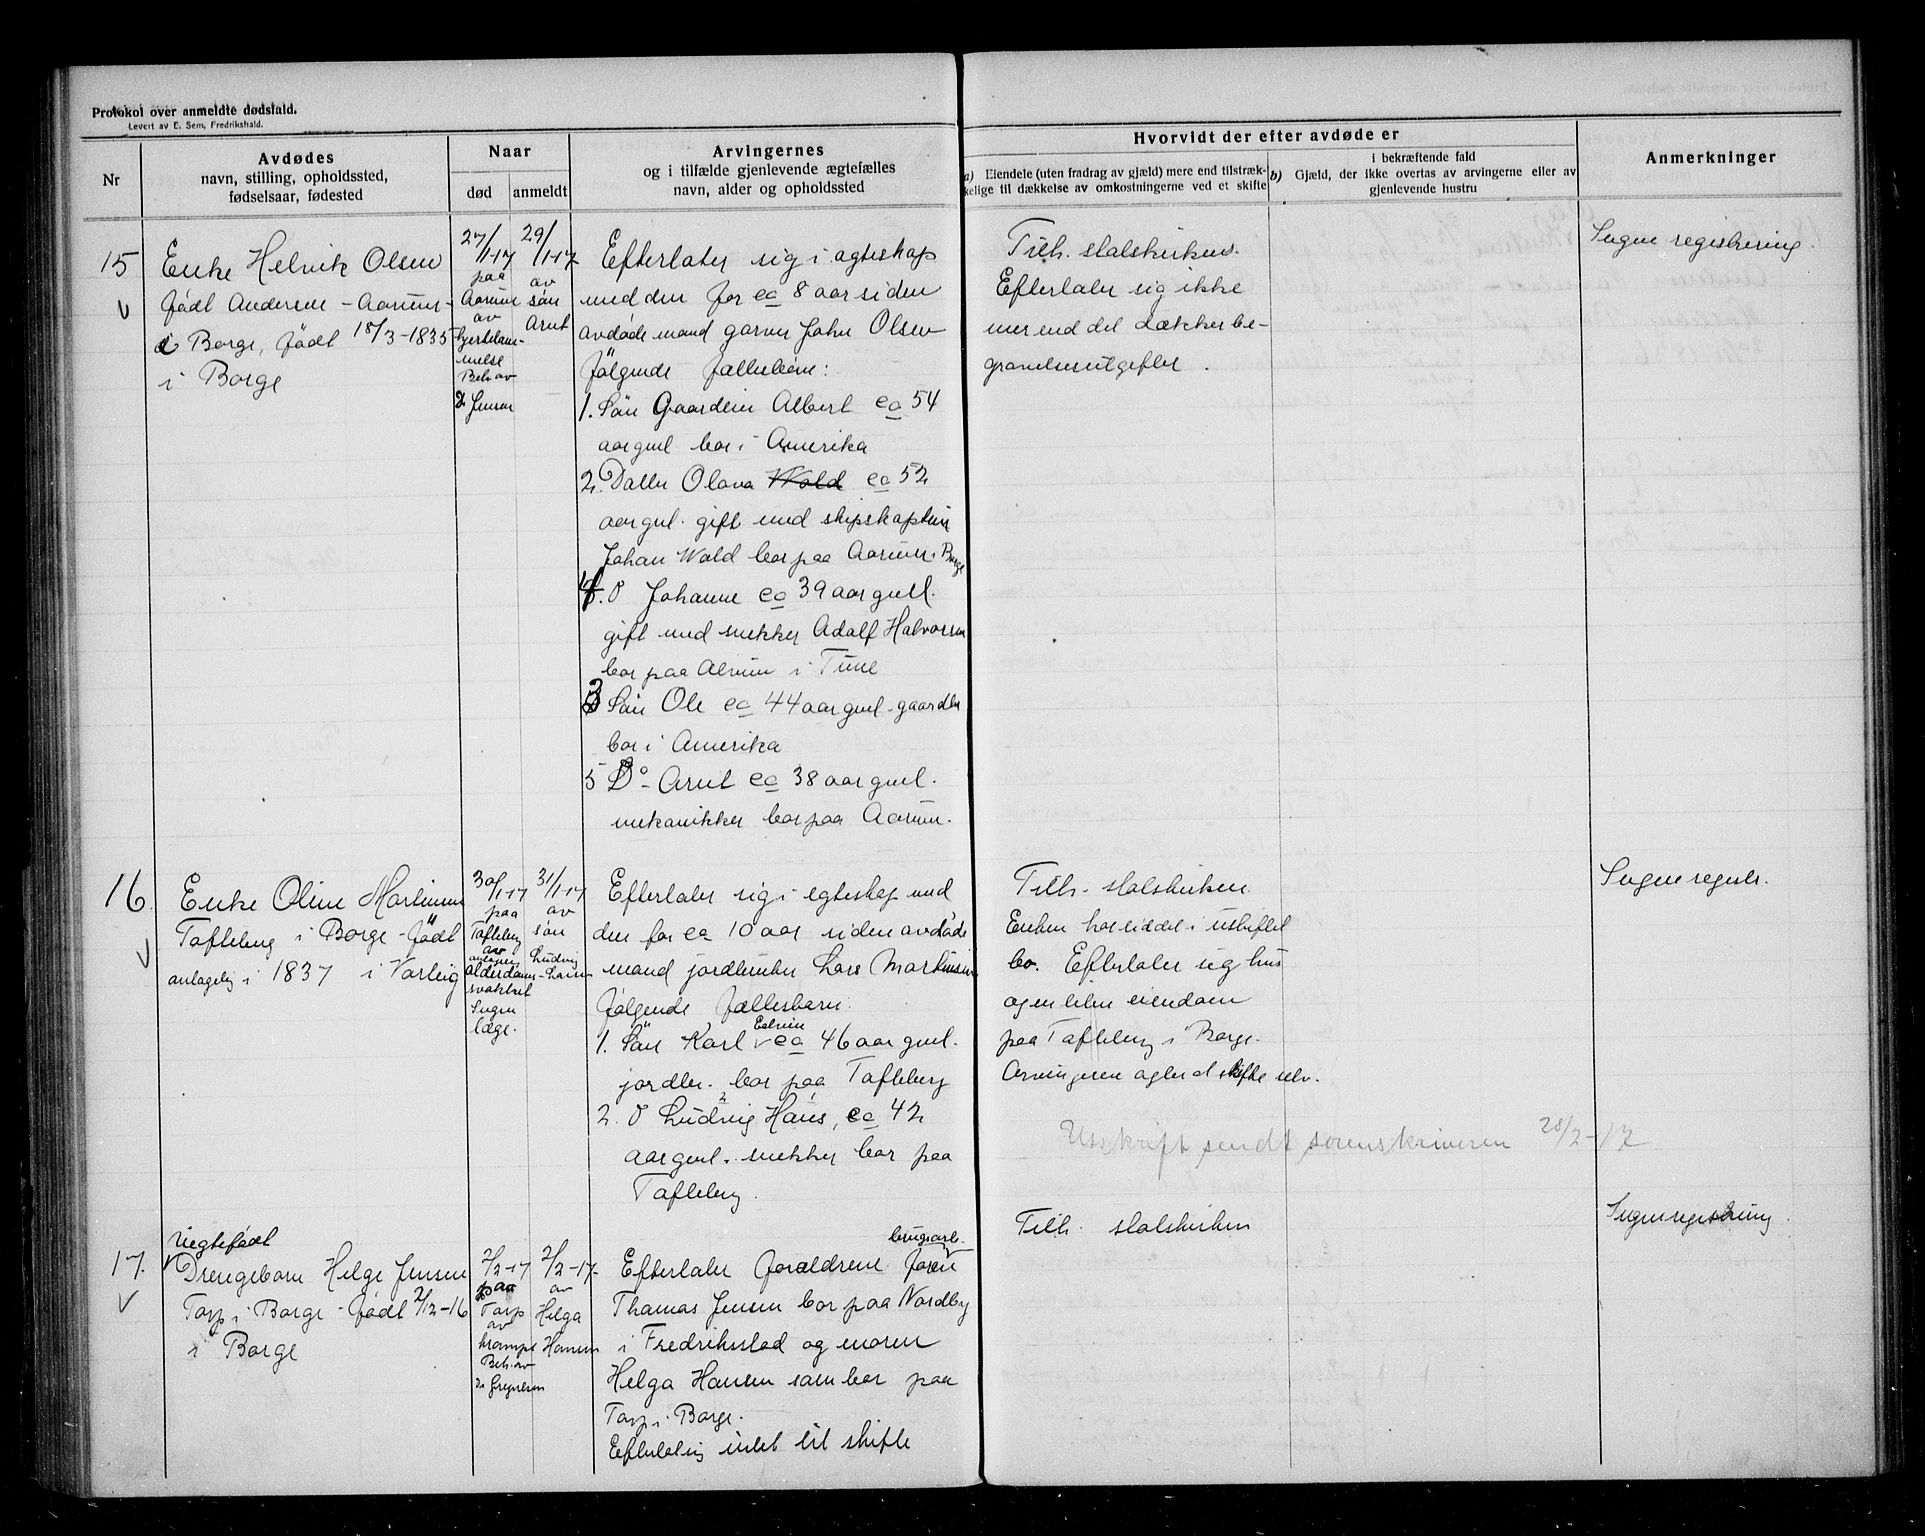 Protokol over anmeldte dødsfald.
Levert av E. Sem, Fredrikshald.
Nr
Avdødes
navn, stilling, opholdssted,
fødselsaar, fødested
Naar
død
anmeldt
Arvingernes
og i tilfælde gjenlevende ægtefælles
navn, alder og opholdssted
Hvorvidt der efter avdøde er
a) Eiendele (uten fradrag av gjæld) mere end tilstræk-
kelige til dækkelse av omkostningerne ved et skifte
i bekræftende fald
b) Gjæld, der ikke overtas av arvingerne eller av
gjenlevende hustru
Anmerkninger
15
Enke Helvik Olsen
født Andersen - Aarum -
i Borge, født 18/3-1835
i Borge
27/1-17
paa
Aarum
av
hjertelam-
melse
Beh av
Dr Jensen
29/1-17
av
søn
Arnt
Efterlater sig i ægteskap
med den for ca 8 aar siden
avdøde mand garver John Olsen
følgende fællesbørn:
1. Søn Gaardeier Albert ca 54
aar gml bor i Amerika
2. Datter Olava Wold ca 52
aar gml. gift med skipskaptein
Johan Wold bor paa Aarum i Borge
4. D Johanne ca 39 aar gml.
gift med snekker Adolf Halvorsen
bor paa Alvim i Tune
3 Søn Ole ca 44 aar gml - gaardbr
bor i Amerika
5 Do - Arnt ca 38 aar gml.
mekanikker bor paa Aarum.
Tilh. statskirken.
Efterlater sig ikke
mer end det dækker be-
gravelsesutgifter.
Ingen registrering.
16.
Enke Oline Martinsen
Tofteberg i Borge - født
antagelig i 1837 i Varteig
30/1-17
paa
Tofteberg
av
antagelig
alderdoms-
svakhet
Ingen
læge.
31/1-17
av
søn
Ludvig
Larsen
Efterlater sig i egteskap med
den for ca 10 aar siden avdøde
mand jordbruker Lars Martinsen
følgende fællesbarn:
1. Søn Karl Edvin ca 46 aar gml.
jordbr. bor paa Tofteberg
2. D Ludvig Hans, ca 42
aar gml. snekker bor paa
Tofteberg.
Tilh. statskirken.
Enken har siddet i uskiftet
bo. Efterlater sig hus
og en liten eiendom
paa Tofteberg i Borge.
Arvingerne agter at skifte selv.
Utskrift sendt sorenskriveren 28/2-17
Ingen registr.
17.
Uegtefødt
Drengebarn Helge Jensen
Torp i Borge - født 2/12-16
i Borge
2/2-17
paa
Torp
av
krampe
Beh av
Dr Gregersen
2/2-17.
av
Helga
Hansen
Efterlater forældrene faren brugsarb.
Thomas Jensen bor paa Nordby
i Fredriksstad og moren
Helga Hansen som bor paa
Torp i Borge.
Efterlot sig intet til skifte
Tilh. statskirken
Ingen registrering.